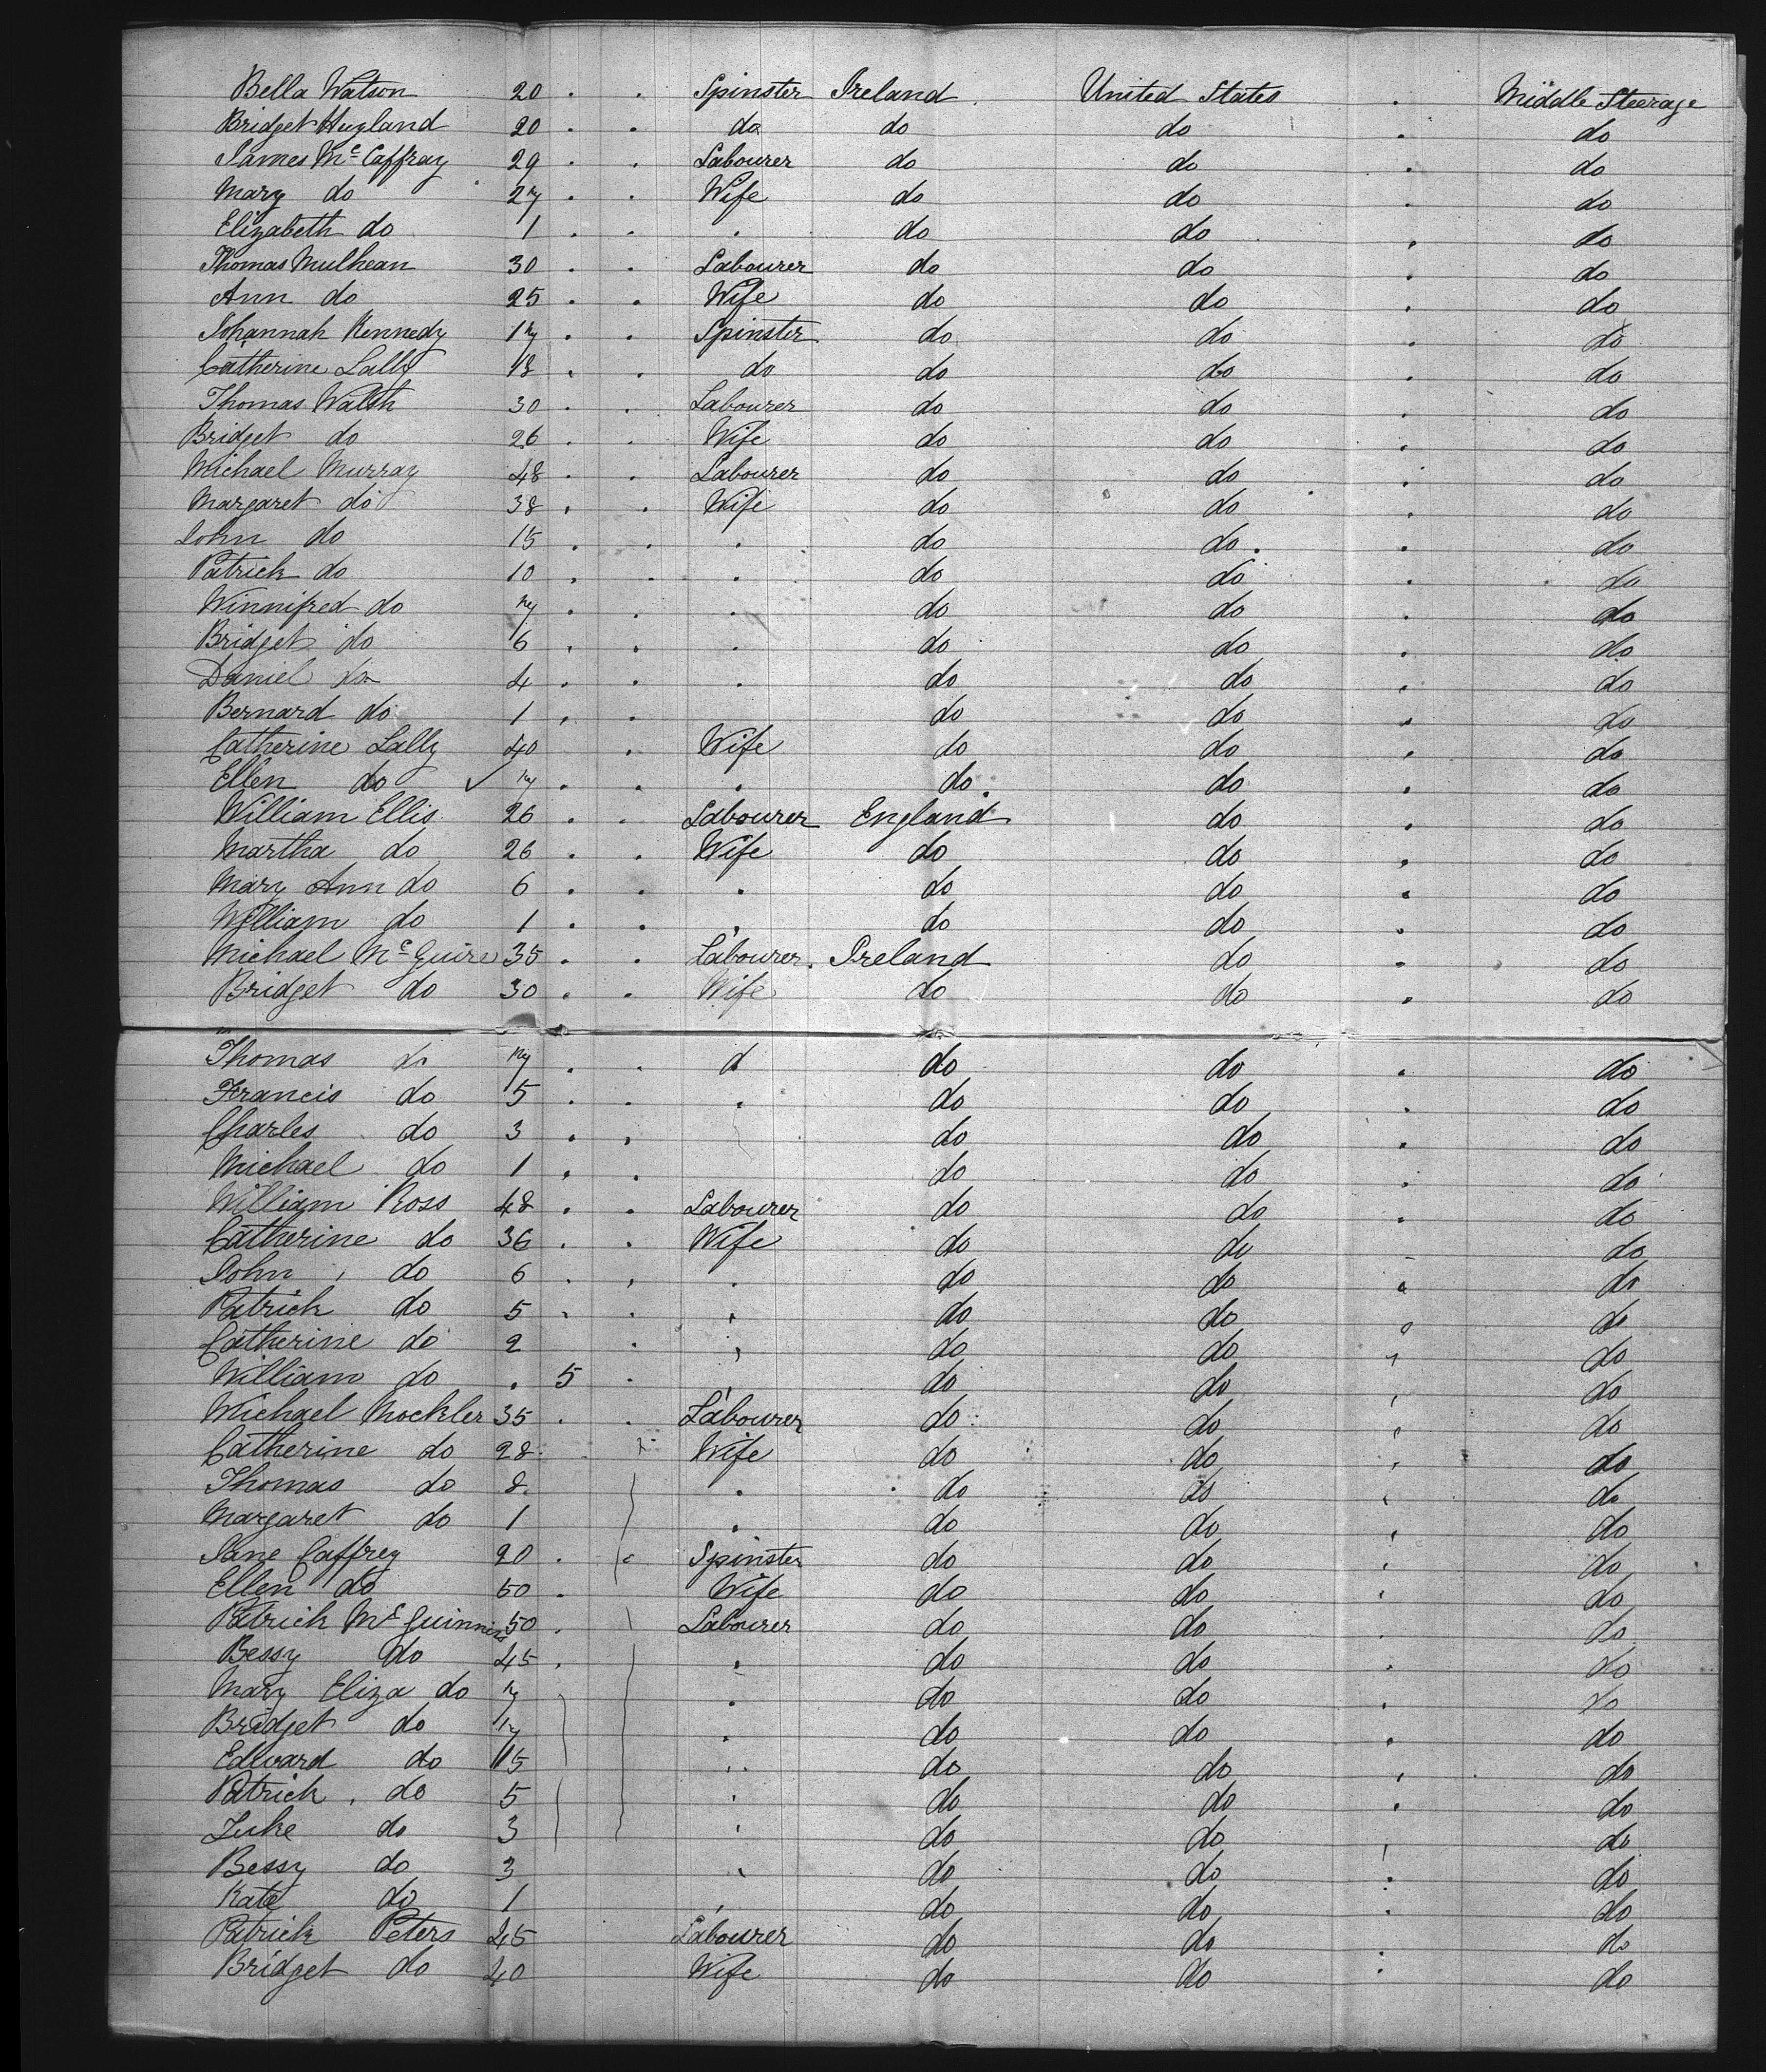 Bella Watson 20 . . Spinster Ireland . United States . Middle Steerage
Bridget Hugland 20 . . do do do . do
James Mc Caffray 29 . . Labourer do do . do
Mary do 27 . . Wife do do . do
Elizabeth do 1 . . . do do . do
Thomas Mulhean 30 . . Labourer do do . do
Ann do 25 . . Wife do do . do
Johannah Kennedy 17 . . Spinster do do . do
Catherine Lally 18 . . do do do . do
Thomas Walsh 30 . . Labourer do do . do
Bridget do 26 . . Wife do do . do
Michael Murray 48 . . Labourer do do . do
Margaret do 38 . . Wife do do . do
John do 15 . . . do do . do
Patrick do 10 . . . do do . do
Winnifred do 7 . . . do do . do
Bridget do 6 . . . do do . do
Daniel do 4 . . . do do . do
Bernard do 1 . . do do . do
Catherine Lally 40 . Wife do do . do
Ellen do ✓ 7 . . . do do . do
William Ellis 26 . . Labourer England do . do
Martha do 26 . . Wife do do . do
Mary Ann do 6 . . . do do . do
William do 1 . . . do do . do
Michael Mc Guire 35 . . Labourer Ireland do . do
Bridget do 30 . . Wife do do . do
Thomas do 7 . . d do do . do
Francis do 5 . . . do do . do
Charles do 3 . . do do . do
Michael do 1 . . do do . do
William Ross 48 . . Labourer do do . do
Catherine do 36 . . Wife do do . do
John do 6 . . . do do . do
Patrick do 5 . . . do do . do
Catherine do 2 . . do do . do
William do . 5 . do do . do
Michael Mockler 35 . . Labourer do do . do
Catherine do 28 . Wife do do . do
Thomas do 8 . do do . do
Margaret do 1 . do do . do
Jane Caffrey 20 . . Spinster do do . do
Ellen do 50 . Wife do do . do
Patrick Mc Guinniss 50 . Labourer do do . do
Bessy do 45 . . do do . do
Mary Eliza do 7 . do do . do
Bridget do 17 . do do . do
Edward do 15 . do do . do
Patrick do 5 . do do . do
Luke do 3 . do do . do
Bessy do 3 . do do . do
Kate do 1 . do do . do
Patrick Peters 45 Labourer do do . do
Bridget do 40 Wife do do . do